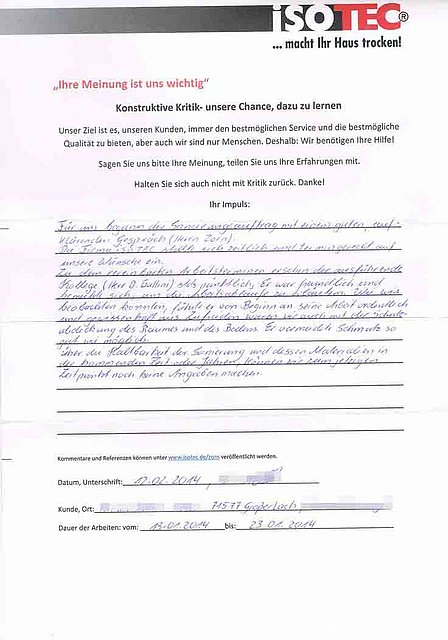 ISOTEC®
... macht Ihr Haus trocken!
„Ihre Meinung ist uns wichtig“
Konstruktive Kritik- unsere Chance, dazu zu lernen
Unser Ziel ist es, unseren Kunden, immer den bestmöglichen Service und die bestmögliche
Qualität zu bieten, aber auch wir sind nur Menschen. Deshalb: Wir benötigen Ihre Hilfe!
Sagen Sie uns bitte Ihre Meinung, teilen Sie uns Ihre Erfahrungen mit.
Halten Sie sich auch nicht mit Kritik zurück. Danke!
Ihr Impuls:
Für uns begann der Sanierungsauftrag mit einem guten, auf-
klärenden Gespräch (Herr Zorn).
Die Firma ISOTEC stellte sich zeitlich und termingerecht auf
unsere Wünsche ein.
Zu dem vereinbarten Arbeitsterminen erschien der ausführende
Kollege (Herr D. ) stets pünktlich. Er war freundlich und
bemüht sich, uns die Arbeitsabläufe zu erklären. Wie wir
beobachten konnten, führte er von Beginn an seine Arbeit ordentlich
und gewissenhaft aus. Zufrieden waren wir auch mit der Schutz-
abdeckung des Raumes und des Bodens. Er vermeidet Schmutz so
gut wie möglich.
Über die Haltbarkeit der Sanierung und dessen Materialien in
der kommenden Zeit oder Jahren, können wir zum jetzigen
Zeitpunkt noch keine Angaben machen.
Kommentare und Referenzen können unter www.isotec.de/zorn veröffentlicht werden.
Datum, Unterschrift: 12.02.2014,
Kunde, Ort: 71577 Großerlach,
Dauer der Arbeiten: vom: 13.01.2014 bis: 23.01.2014